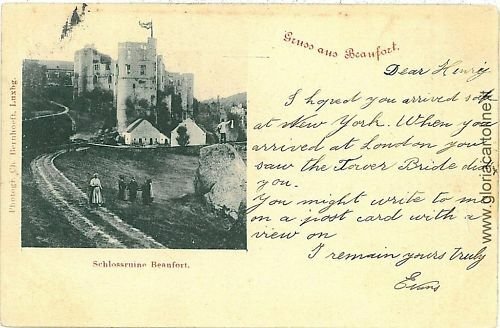 Gruss aus Beaufort.
Dear Henry
I hoped you arrived safe
at New York. When you
arrived at London you
saw the Tower Bride did
you.
You might write to me
on a post card with a
view on
I remain yours truly
Evans
Photogr. Ch. Bernhoeft, Luxbg.
Schlossruine Beaufort.
www.gloriacartonline.it